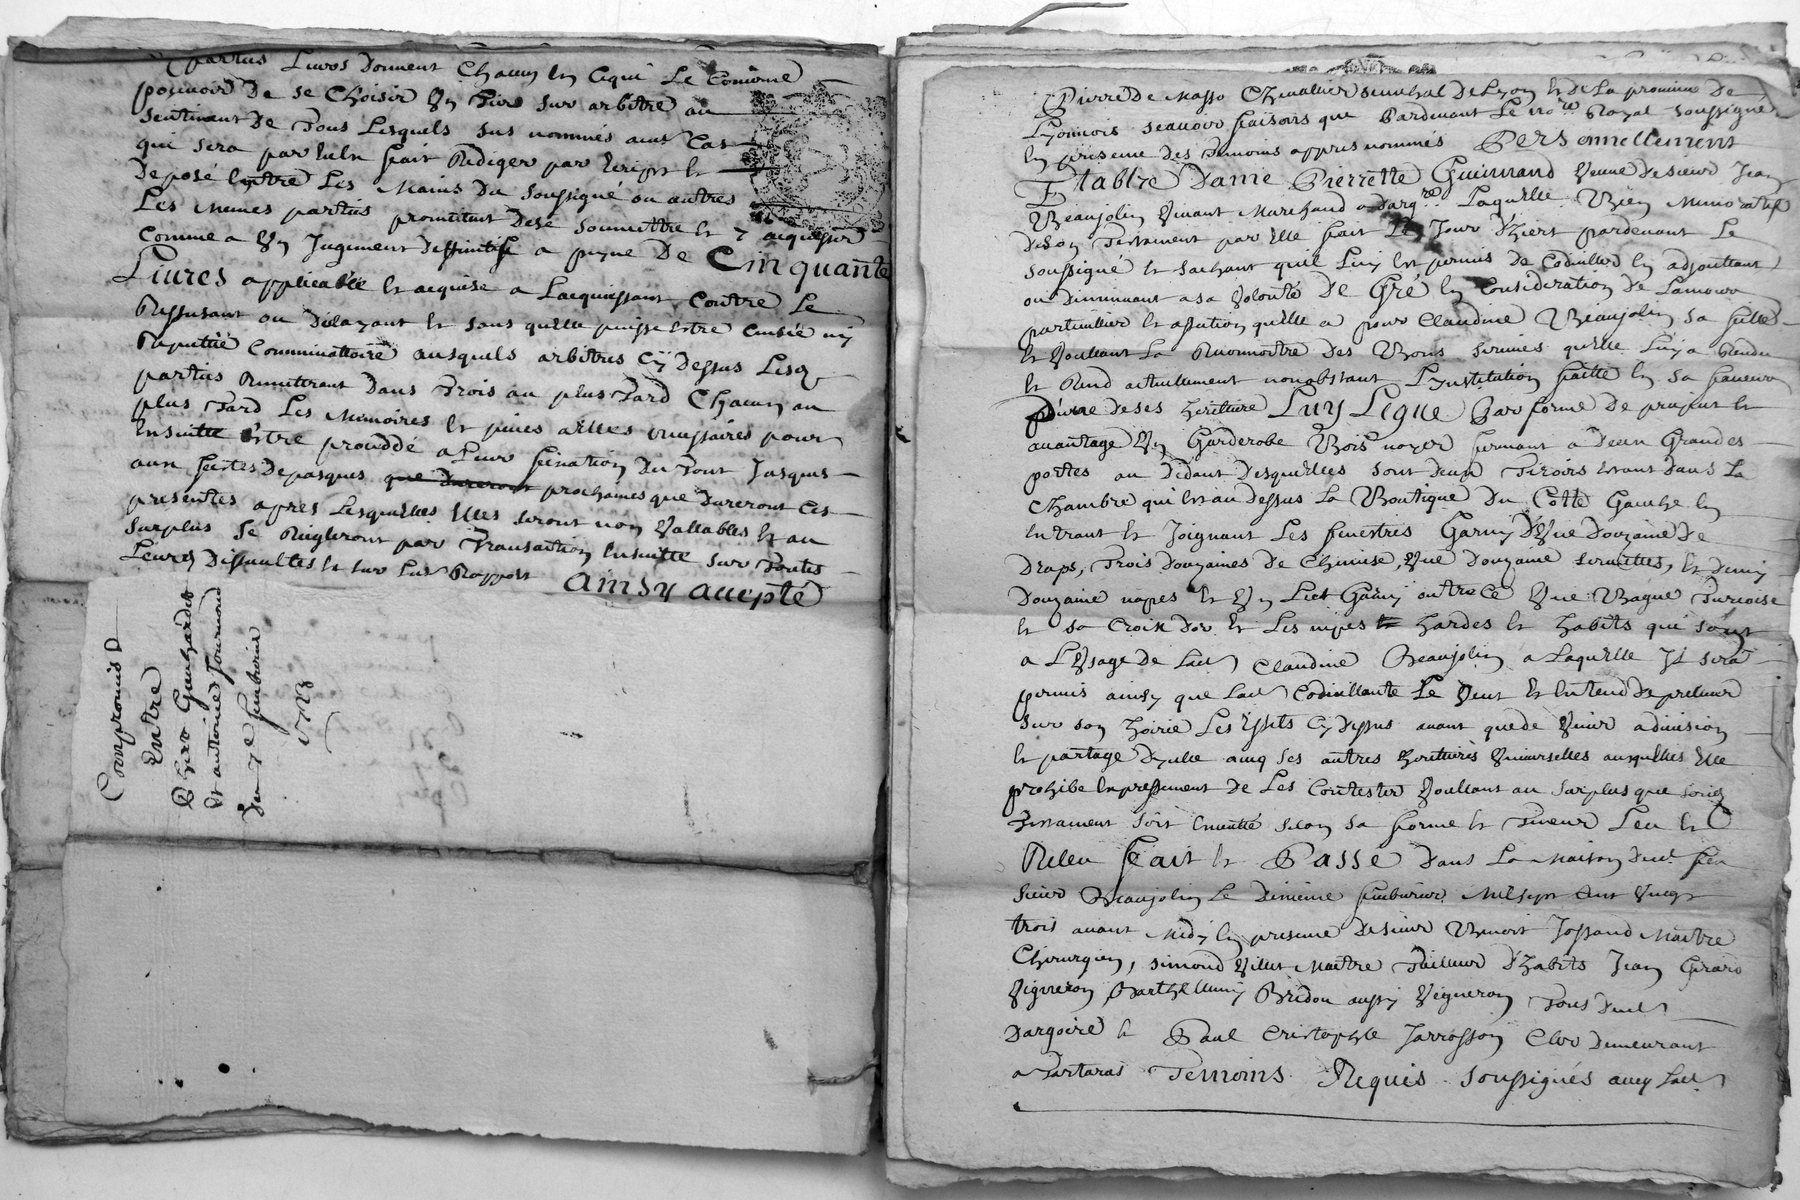 parties Livres donnent Chacun en a qui Le Concerne
pouvoir De se Choisir Un Tiers sur arbitre au
sentiment De Tous Lesquels sus nommés aud Cas
qui sera par Eulx fait Rediger par Ecript et
Deposé Entre Les Mains Du soussigné ou autres
Les Memes parties promettent De se soumettre et y acquiesser
Comme a Un Jugement Deffinitif a peyne De Cinquante
Livres applicable et acquise a Lacquiessant Contre Le
Reffusant ou Délayant et sans quelle puisse Estre Censée ny
Reputtée Comminattoire ausquels arbitres Cy Dessus Lesd
parties Remettront Dans Trois au plus Tard Chacun au
plus Tard Les Memoires et pieces a Elles necessaires pour
Ensuitte Estre proceddé a Leur fixation Du Tout Jusques
aux festes De pasques que Dureront prochaines que Dureront Ces
presentes apres Lesquelles Elles seront non Vallables et au
surplus se Regleront par Transaction Ensuitte sur Toutes
Leurs Difficultes et sur Led Rapport Ainsy accepté
Compromis D
Entre
Pierre Gauchardet
Et antoine Journoud
Du 7e feubvrier
1723
Pierre De Masso Chevallier senechal De Lyon et De La province De
Lyonnois scauoir faisons que Pardevant Le no.re Royal soussigné
En presence Des Temoins appres nommés Personnellement
Etablie Dame Pierrette Guimand Veuve De sieur Jean
Beaujolin Vivant Marchand a Darg.re Laquelle Bien Memoratif
De son Testament par Elle fait Le Jour D'hiert pardevant Le
soussigné et sachant qu'il Luy Est permis de Codiciller En adjouttant
ou Diminuant a sa Volonté De Gré En Consideration De Lamour
particullier et affection qu'elle a pour Claudine Beaujolin sa fille
Et Voullant La Reconnoitre Des Bons services qu'elle Luy a Rendu
Et Rend actuellement nonobstant L'Institution faitte En sa faveur
pour une De ses heritiere Luy Legue Par forme De preciput et
avantage Un Garderobe Bois noyer fermant a Deux Grandes
portes au Dedant Desquelles sont Deux Tiroirs Estant Dans La
Chambre qui Est au Dessus La Boutique Du Cotté Gauche En
Entrant Et Joignant Les fenestres Garny D'Une Douzaine De
Draps, Trois Douzaines De Chemise, Une Douzaine serviettes, Et Demy
Douzaine napes Et Un Liet Garny outre Ce Une Bague Turcoise
Et sa Croix Dor Et Les nipes hardes Et habits qui sont
a L'Usage De Lad Claudine Beaujolin a Laquelle Il sera
permis ainsy que Lad Codicillante Le Veut Et Entend De prelever
sur son hoirie Les Effets Cy Dessus avant que De Venir a division
Et partage D'ycelle avec ses autres heritieres Universelles ausquelles Elle
prohibe Expressement De Les Contester Voullant au surplus que sond
Testament soit Executté selon sa forme Et Teneur Leu Et
Releu fait Et Passé Dans La Maison Dud feu
sieur Beaujolin Le Dixieme feubvrier Mil sept Cent Vingt
trois avant Midy En presence De sieur Benoit Jossand Maitre
Chirurgien, Simond Villet Maitre Tailleur D'habits Jean Girard
Vigneron Barthellemy Bridon aussy Vigneron Tous Dud
Dargoire Et Paul Cristophle Jarrosson Clerc Demeurant
a Tartaras Temoins Requis soussignés avec Lad